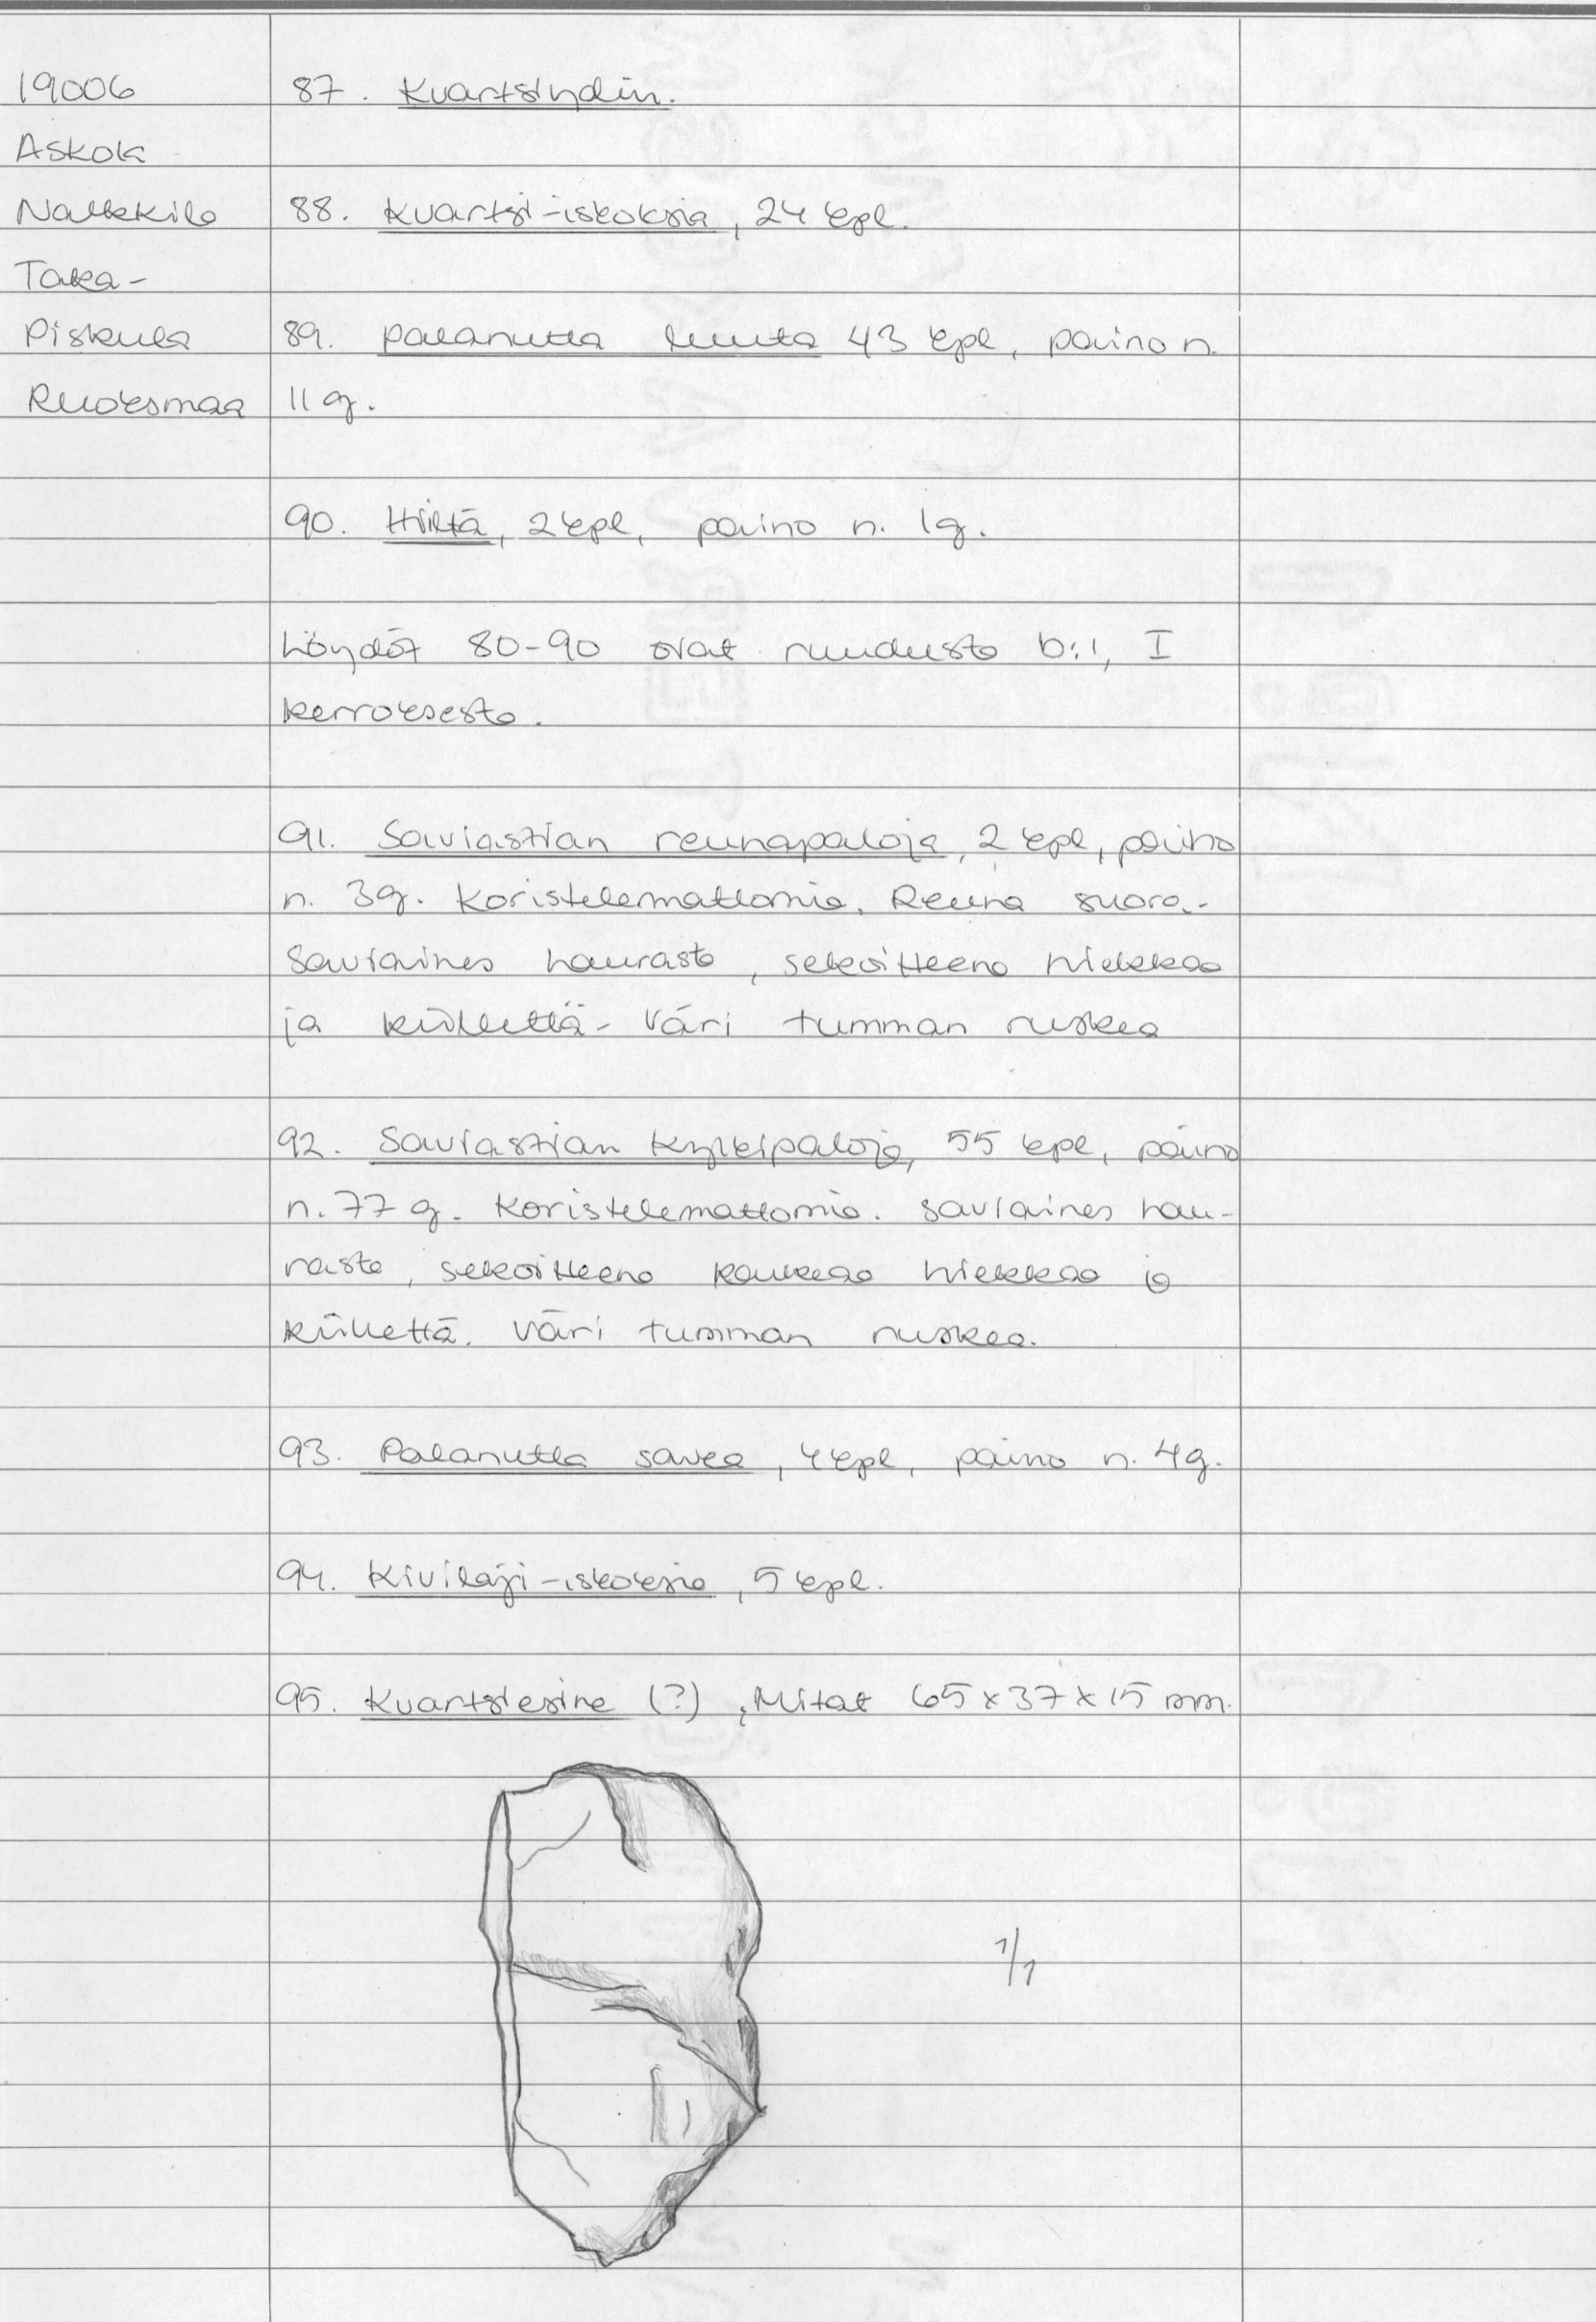 19006
Askola
Nalkkila
Taka-
Piskula
Ruoksmaa
87. Kvartsiydin.
88. Kvartsi-iskoksia, 24 kpl.
89. Palanutta luuta 43 kpl, paino n.
11 g.
90. Hiiltä, 2 kpl, paino n. 1g.
Löydöt 80-90 ovat ruudusta b:1, I
kerroksesta.
91. Saviastian reunapaloja, 2 kpl, paino
n. 3g. Koristelemattomia. Reuna suora.-
Saviaines haurasta, sekoitteena hiekkaa
ja kiillettä- Väri tumman ruskea
92. Saviastian kylkipaloja, 55 kpl, paino
n. 77 g. Koristelemattomia. Saviaines hau-
rasta, sekoitteena karkeaa hiekkaa ja
kiillettä. Väri tumman ruskea.
93. Palanutta savea, 4 kpl, paino n. 4g.
94. Kivilaji-iskoksia, 5 kpl.
95. Kvartsiesine (?), Mitat 65 x 37 x 15 mm.
1/1